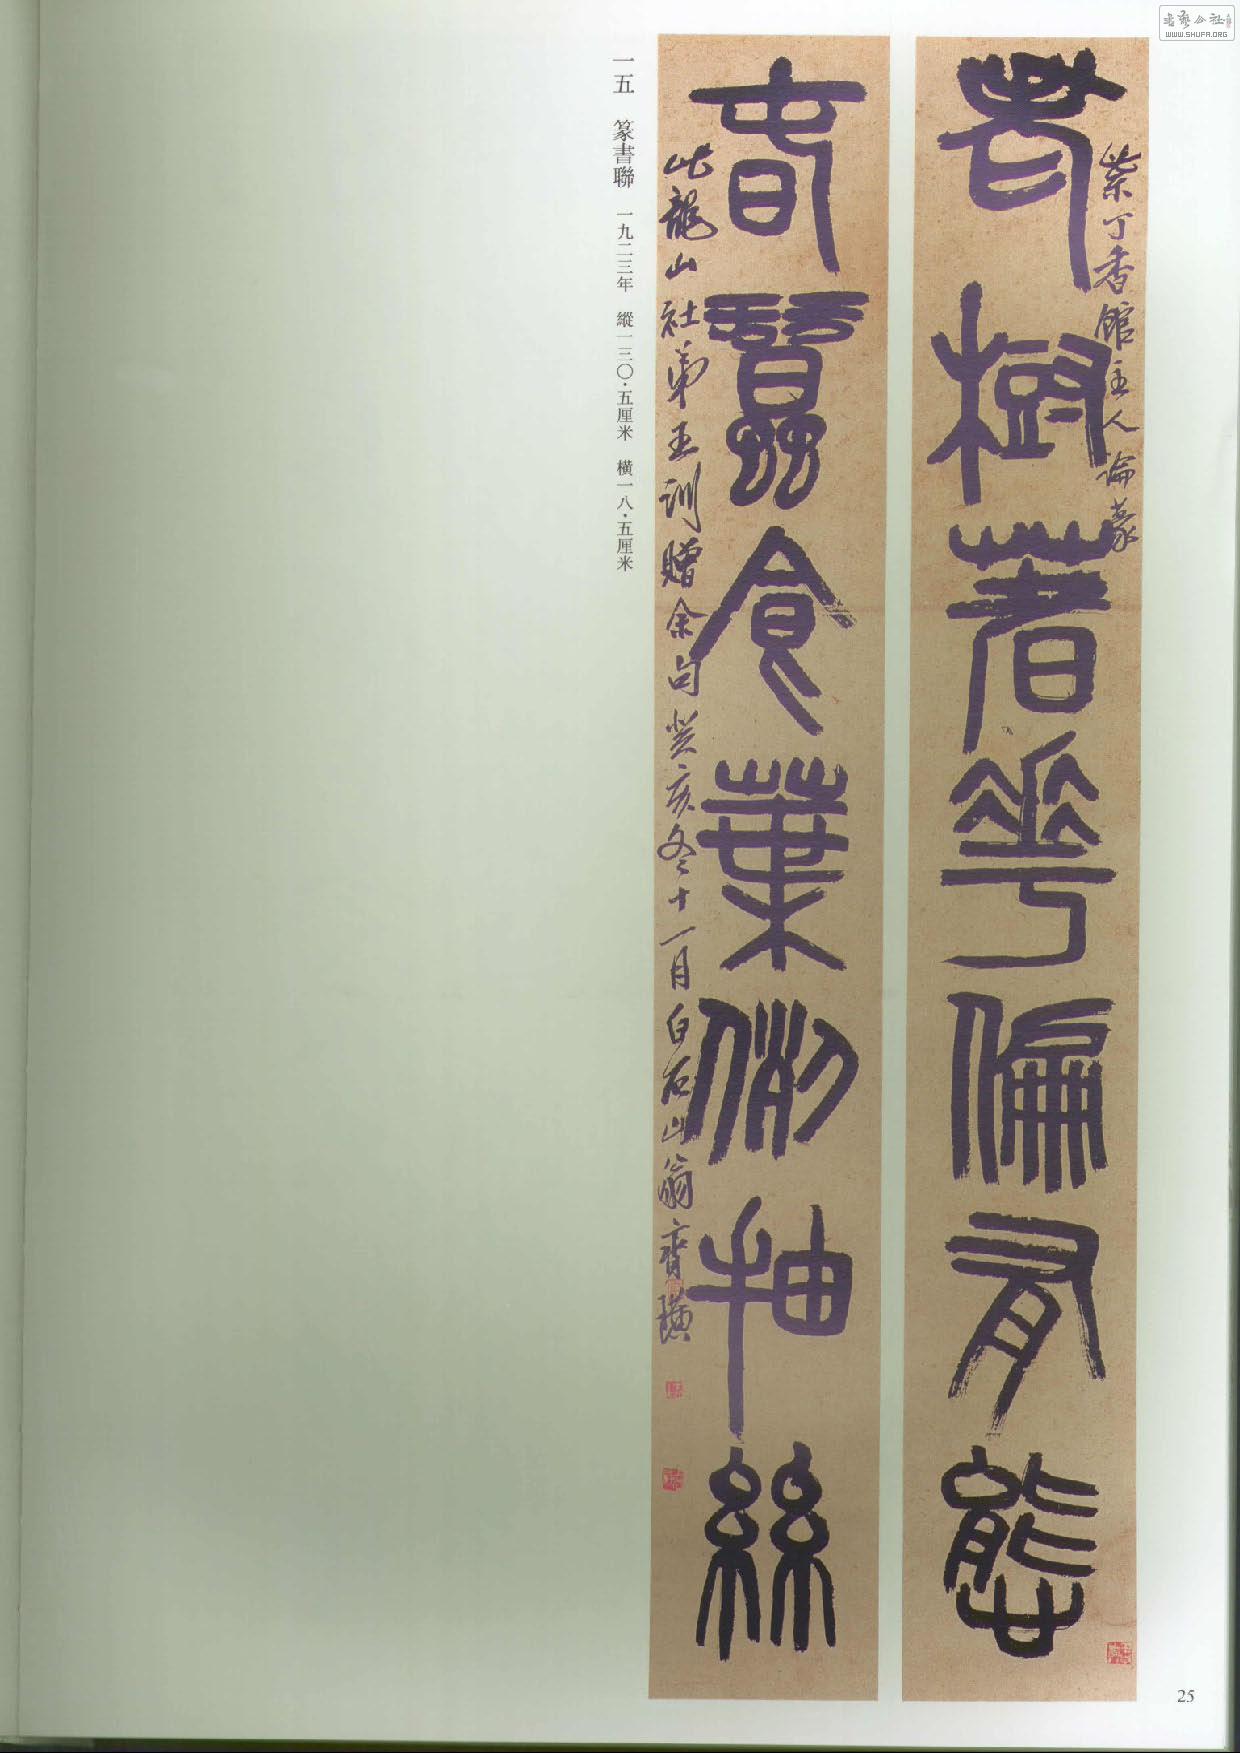 老樹著花偏有態
紫丁香館主人論篆
春蠶食葉例抽絲
此龍山社弟王訓贈余句癸亥冬十一月白石山翁齊璜
一五 篆書聯 一九二三年 縱一三〇·五厘米 橫一八·五厘米
25
WWW.SHUFA.ORG